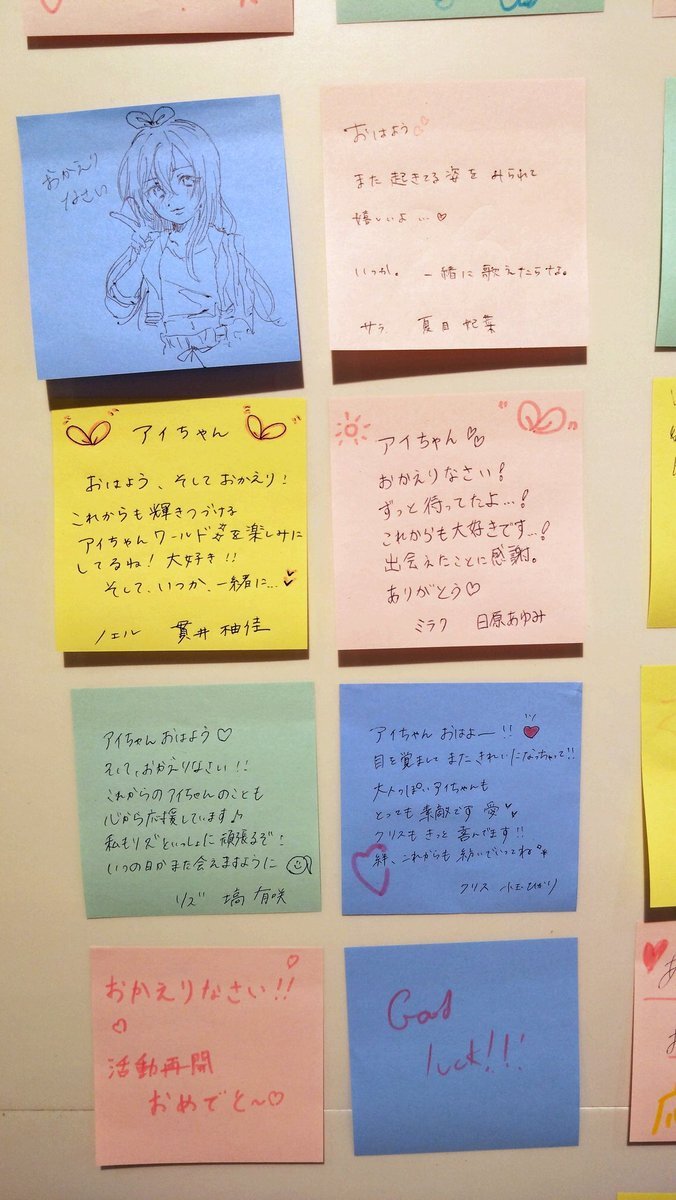 おかえり
なさい
おはよう
また起きてる姿をみられて
嬉しいよ…♡
いつか。一緒に歌えたらな。
サラ 夏目妃菜
アイちゃん
おはよう、そしておかえり!
これからも輝きつづける
アイちゃんワールドを楽しみに
してるね!大好き!!
そして、いつか、一緒に…
ノエル 貫井柚佳
アイちゃん
おかえりなさい!
ずっと待ってたよ…!
これからも大好きです…!
出会えたことに感謝。
ありがとう♡
ミラク 日原あゆみ
アイちゃんおはよう♡
そして、おかえりなさい!!
これからのアイちゃんのことも
心から応援しています♪
私もリズといっしょに頑張るぞ!
いつの日かまた会えますように
リズ 塙有咲
アイちゃん おはよー!!
目を覚まして またきれいになっちゃって!!
大人っぽいアイちゃんも
とっても素敵です 愛
クリスもきっと喜んでます!!
絆、これからも紡いでいってね
クリス 小玉ひかり
おかえりなさい!!
活動再開
おめでと〜♡
Good
luck!!!